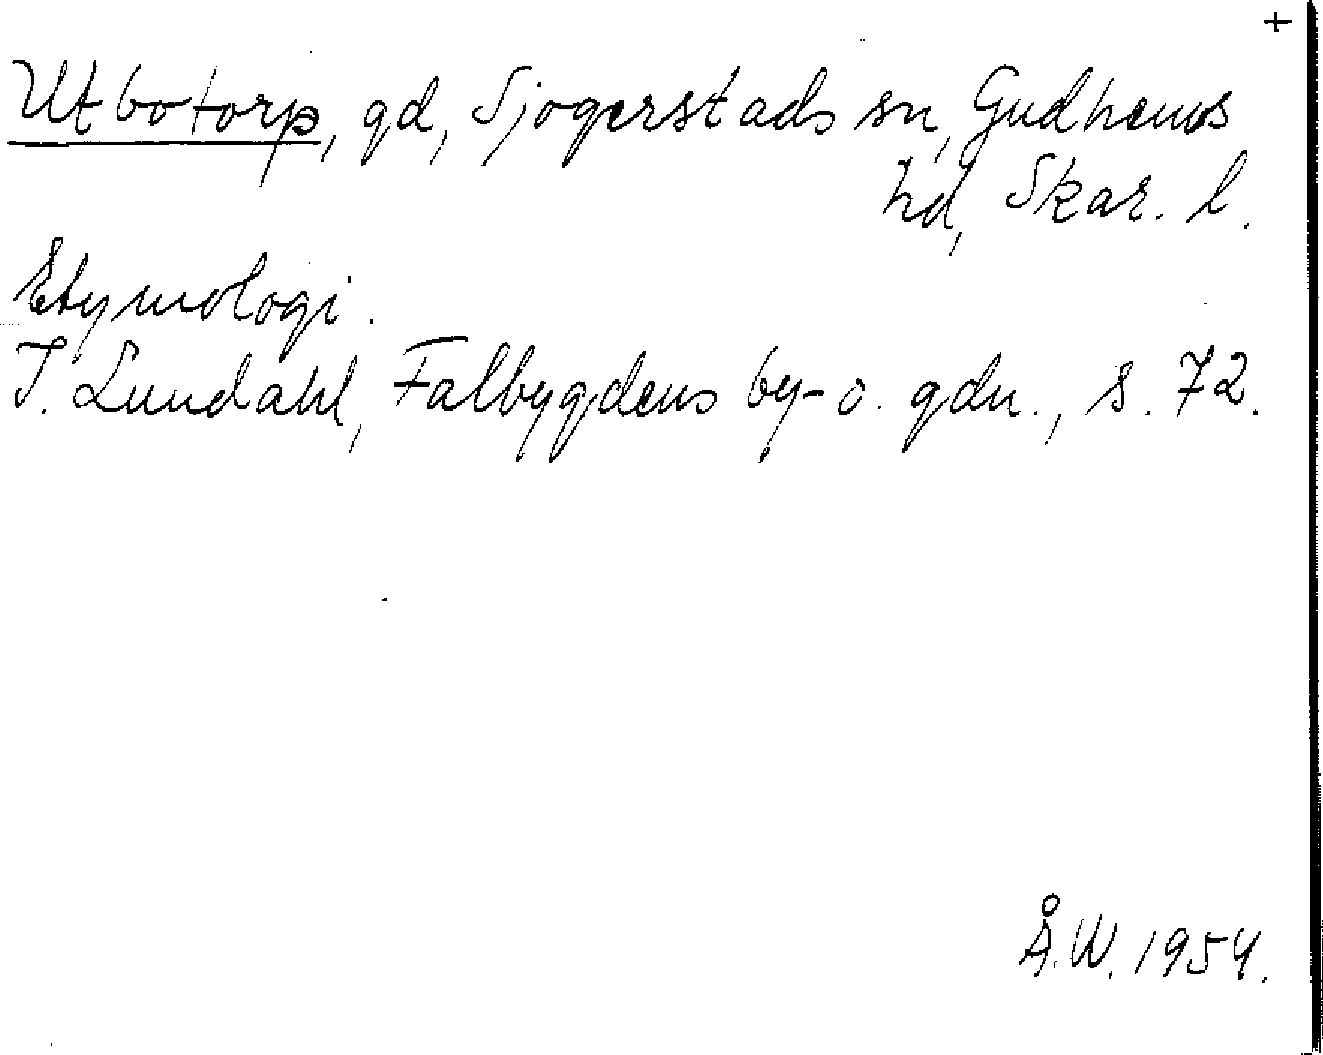 +
Utbotorp, gd, Sjogerstads sn, Gudhems
hd, Skar. l.
Etymologi.
I. Lundahl, Falbygdens by- o. gdn., s. 72.
Å.W. 1954.